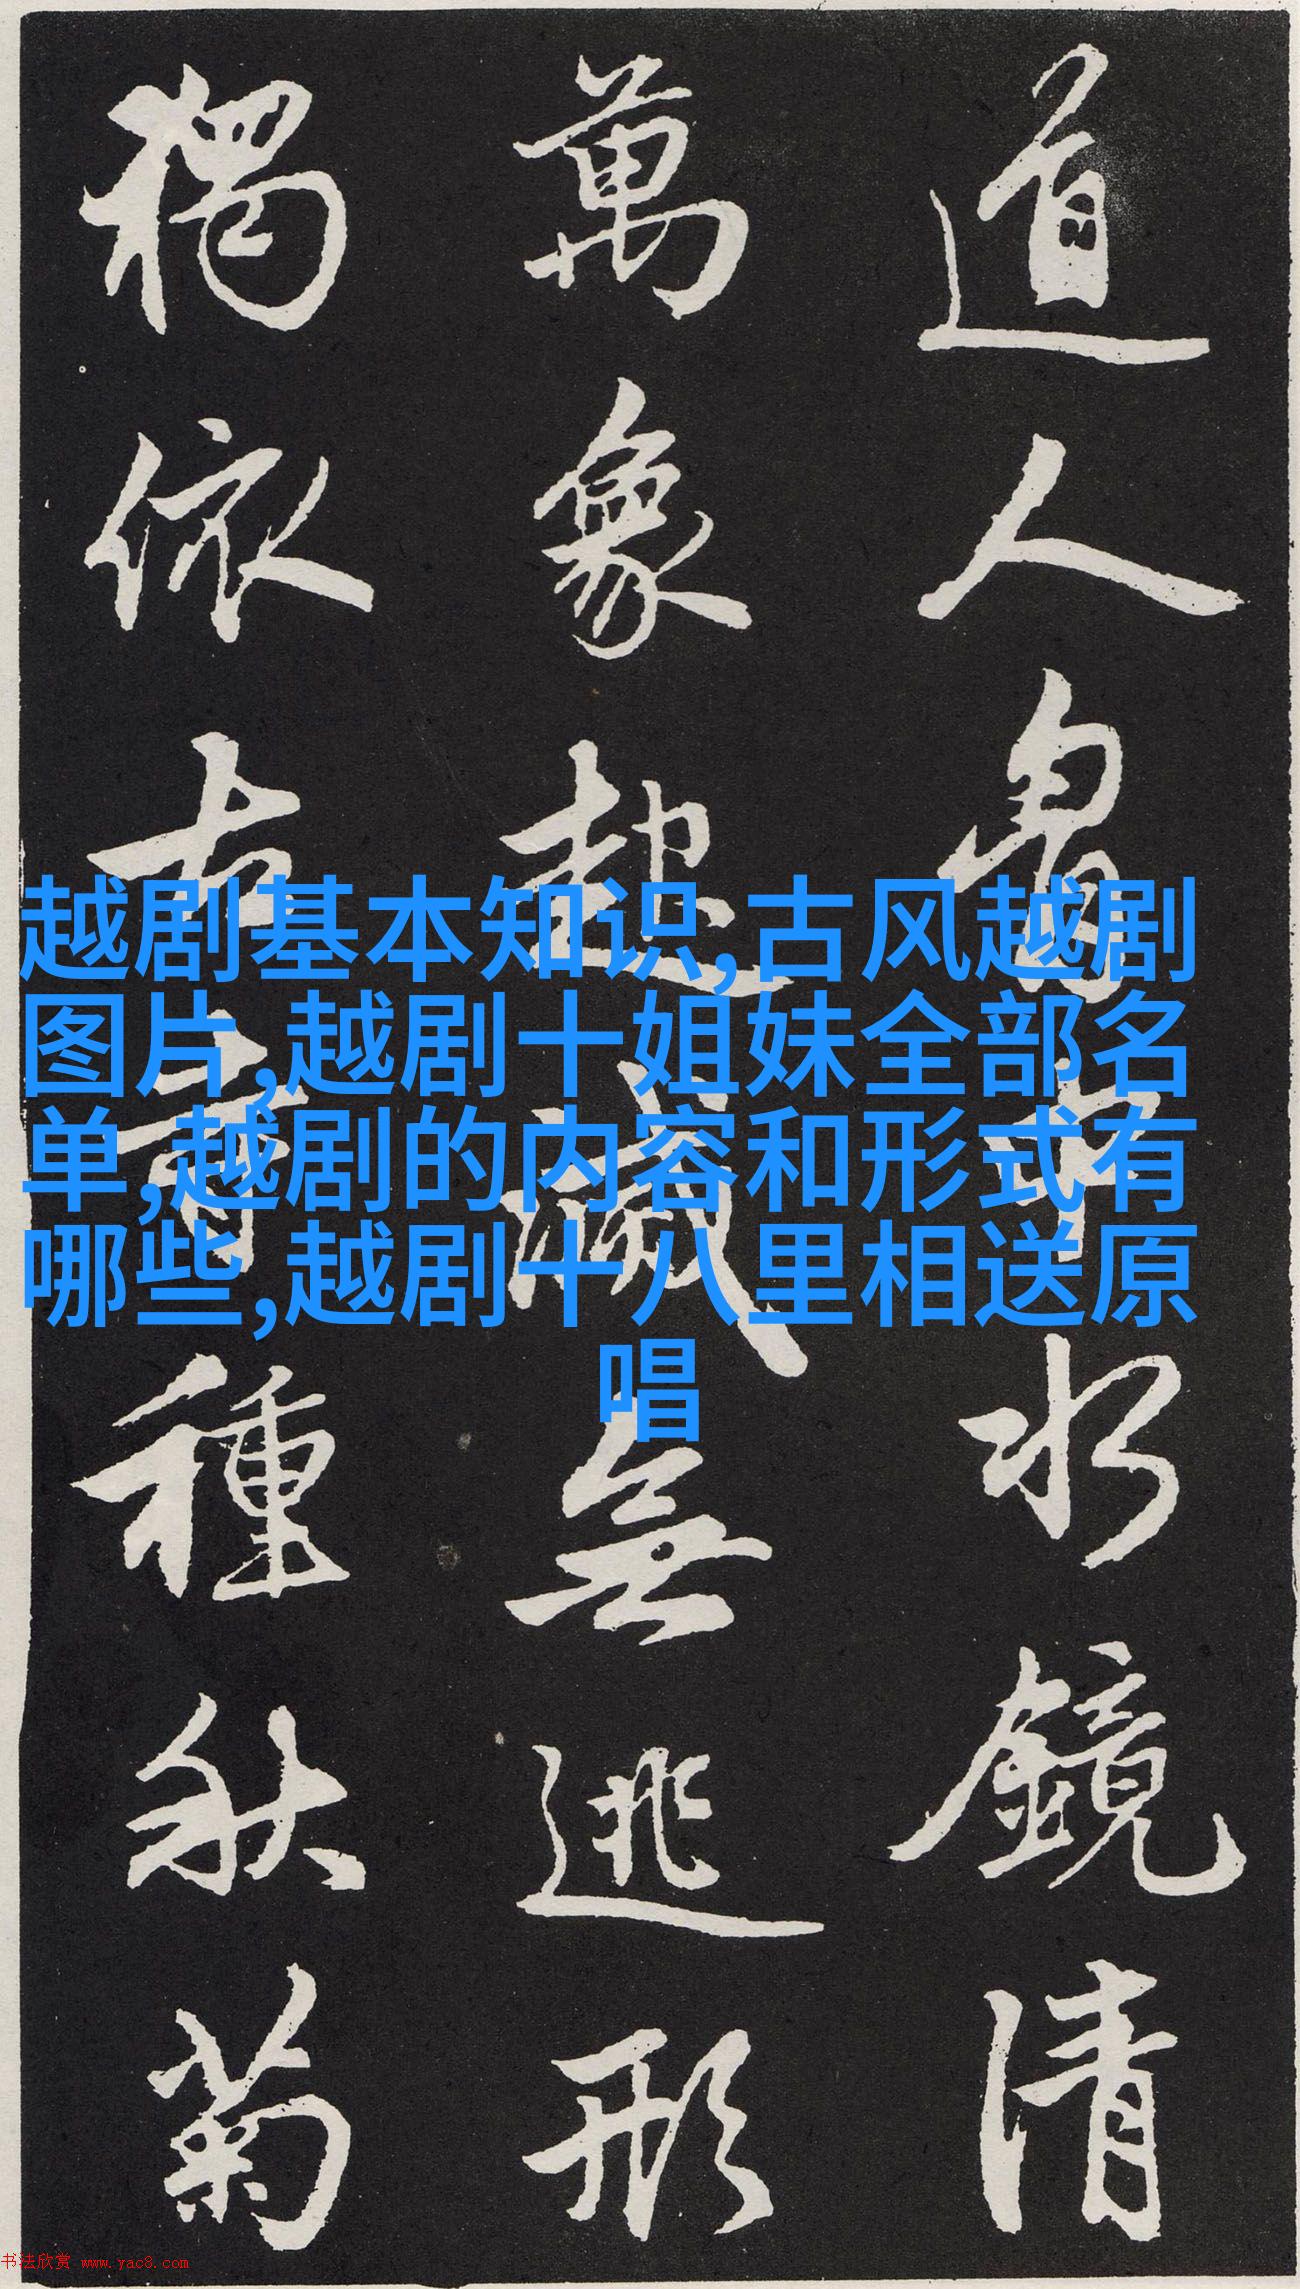 道人胷中水鏡清
萬象起滅無逃形
獨依古寺種秋菊
越剧基本知识,古风越剧
图片,越剧十姐妹全部名
单,越剧的内容和形式有
哪些,越剧十八里相送原
唱
书法欣赏 www.yac8.com